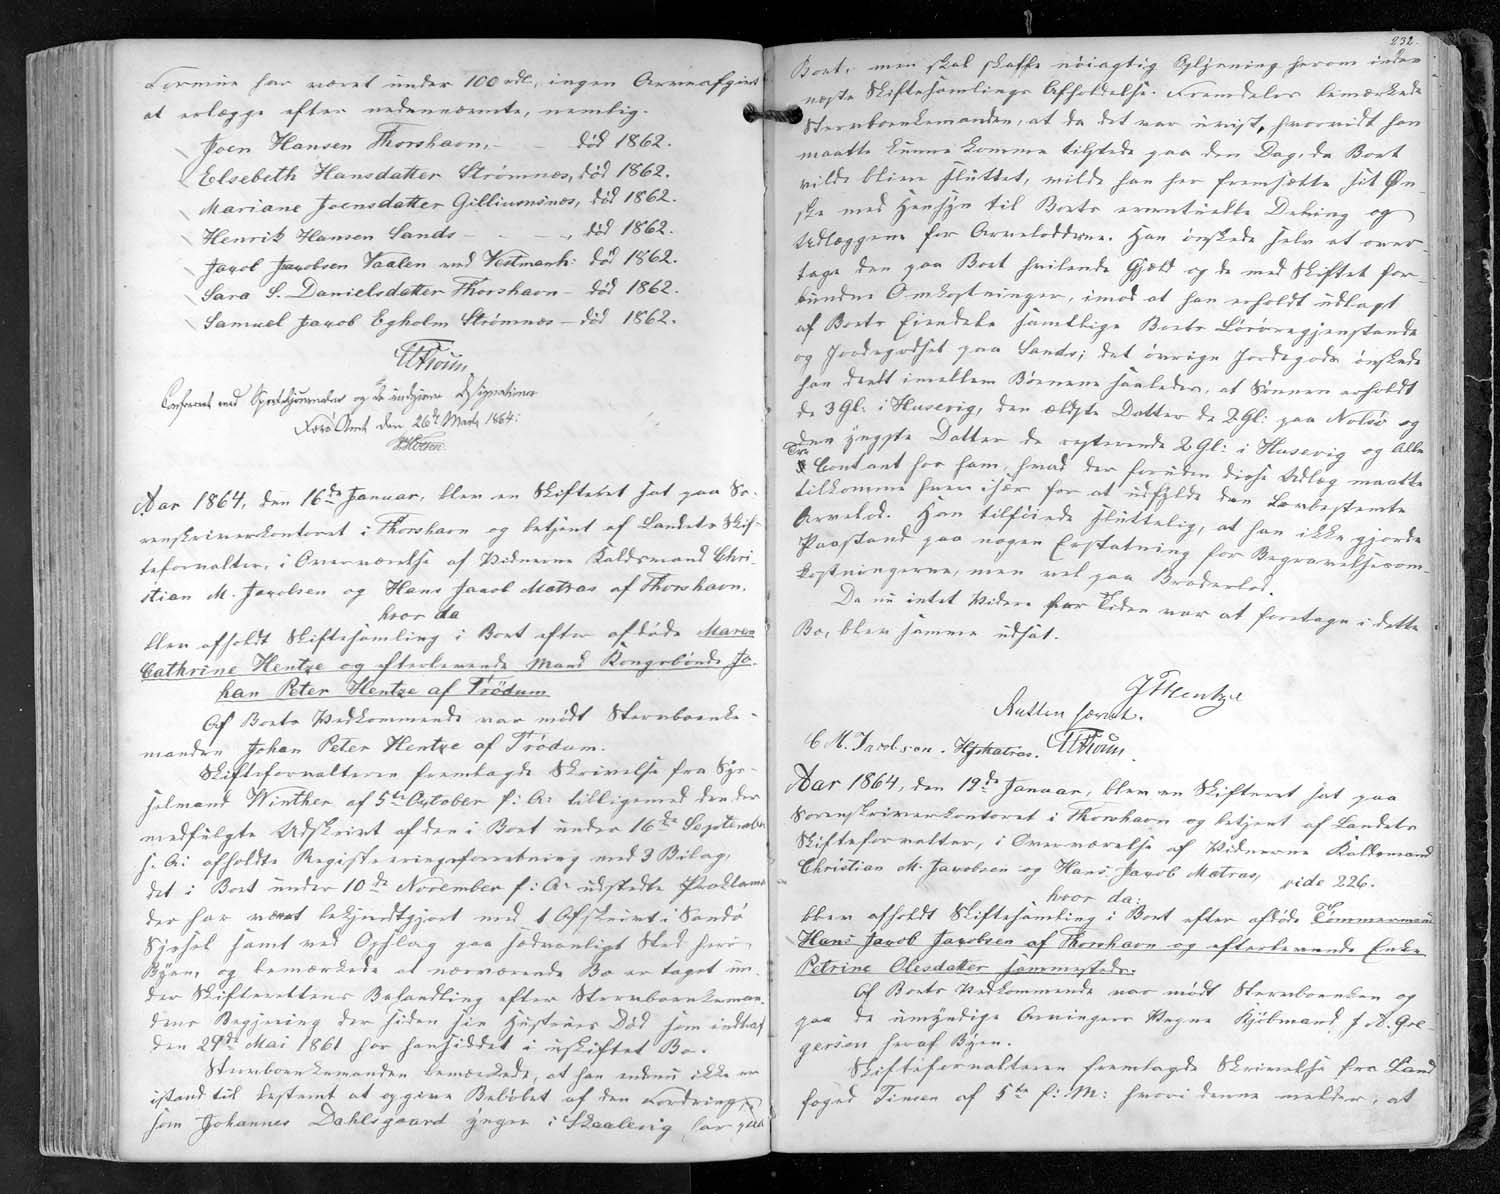 Termin har været under 100 rdl., ingen Arveafgivt
at erlægge efter nedennævnte, nemlig.
Joen Hansen Thorshavn, - - død 1862.
Elsebeth Hansdatter Strømnæs, død 1862.
Mariane Joensdatter Gilliumnæs, død 1862.
Henrik Hansen Sands - - -, død 1862.
Jacob Jacobsen Vaalen ved Vestmanh: død 1862.
Sara S. Danielsdatter Thorshavn - død 1862.
Samuel Jacob Egholm Strømnæs - død 1862.
HTrolle
Conferert med og de indgivne Designationer
Færø Amt den 26de Marts 1864.
Aar 1864, den 16de Januar, blev en Skifteret sat paa So-
renskriverkontoret i Thorshavn og betjent af Landets Skif-
teforvalter, i Overværelse af Vidnerne Kaldsmand Chri-
stian M. Jacobsen og Hans Jacob Matras af Thorshavn,
hvor da
blev afholdt Skiftesamling i Boet efter afdøde Maren
Cathrine Hentze og efterlevende Mand Kongsbonde Jo-
han Peter Hentze af Trødum
Af Boets Vedkommende var mødt Stervboenke-
manden Johan Peter Hentze af Trødum.
Skifteforvalteren fremlagde Skrivelse fra Sys-
selmand Winther af 5te October f: A: tilligemed den der
medfulgte Udskrivt af den i Boet under 16de September
f: A: afholdte Registreringsforretning med 3 Bilag,
det i Boet under 10de November f: A: udstedte Proklama
der har været bekjendtgjort med 1 Afskrivt i Sandø
Syssel samt ved Opslag paa sædvanligt Sted her i
Byen, og bemærkede at nærværende Bo er taget un-
der Skifterettens Behandling efter Stervboenkeman-
dens Begjering der siden sin Hustrues Død som indtraf
den 29de Mai 1861 har henhiddet i uskiftet Bo.
Stervboenkemanden bemærkede, at han endnu ikke er
istand til bestemt at opgive Beløbet af den Fordring,
som Johannes Dahlsgaard yngre i Skaalevig har paa
232.
Boet, men skal skaffe nøiagtig Oplysning herom inden
næste Skiftesamlings Afholdelse. Fremdeles bemærkede
Stervboenkemanden, at da det var uvist, hvorvidt han
maatte kunne komme tilstede paa den Dag, da Boet
vilde blive sluttet, vilde han her fremsætte sit Øn-
ske med Hensyn til Boets eventuelle Deling og
Udlæggene for Arvelodderne. Han ønskede selv at over-
tage den paa Boet hvilende Gjæld og de med Skiftet for-
bundne Omkostninger, imod at han erholdt udlagt
af Boets Eiendele samtlige Boets Løsøregjenstande
og Jordegodset paa Sands; det øvrige Jordegods ønskede
han deelt imellem Børnene saaledes, at Sønnen erholdt
de 3 Gl: i Husevig, den ældste Datter de 2 Gl: paa Nolsø og
den yngste Datter de resterende 2 Gl: i Husevig og Alle
Contant hos ham, hvad der foruden disse Udlæg maatte
tilkomme hver især for at udfylde den Lovbestemte
Arvelod. Han tilføiede sluttelig, at han ikke gjorde
Paastand paa nogen Erstatning for Begravelsesom-
kostningerne, men vel paa Broderlod.
Da nu intet Videre for Tiden var at foretage i dette
Bo, blev samme udsat.
JPHentze
Retten hævet.
C. M. Jacobsen. HJMatras. HTrolle
Aar 1864, den 19de Januar, blev en Skifteret sat paa
Sorenskriverkontoret i Thorshavn og betjent af Landets
Skifteforvalter, i Overværelse af Vidnerne Kaldsmand
Christian M. Jacobsen og Hans Jacob Matras, vide 226.
hvor da:
blev afholdt Skiftesamling i Boet efter afdøde Tømmermand
Hans Jacob Jacobsen af Thorshavn og efterlevende Enke
Petrine Olesdatter sammesteds.
Af Boets Vedkommende var mødt Stervboenken og
paa de umyndige Arvingers Vegne Kjøbmand J A. Gre-
gersen heraf Byen.
Skifteforvalteren fremlagde Skrivelse fra Land
foged Tinsen af 5te f: M: hvori denne melder, at